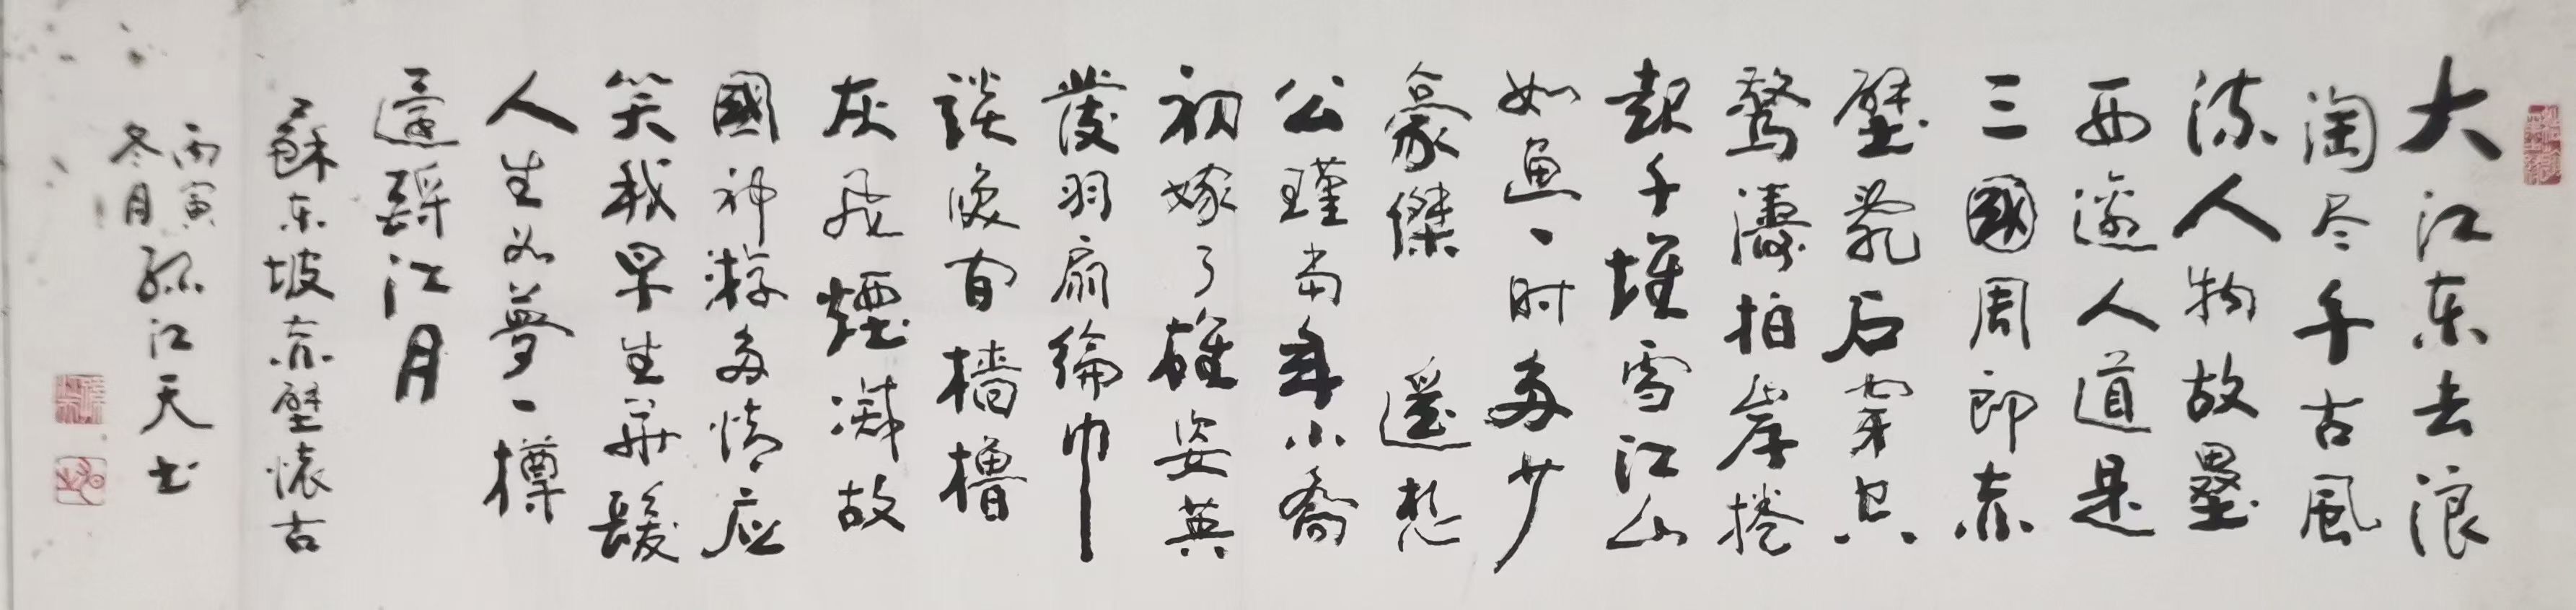 大江东去浪
淘尽千古風
流人物故壘
西邊人道是
三國周郎赤
壁乱石穿空
驚濤拍岸捲
起千堆雪江山
如画一时多少
豪傑遥想
公瑾当年小喬
初嫁了雄姿英
發羽扇綸巾
談笑间檣櫓
灰飛煙滅故
國神游多情应
笑我早生华髮
人生如夢一樽
還酹江月
蘇东坡赤壁懷古
丙寅
冬月
江天书